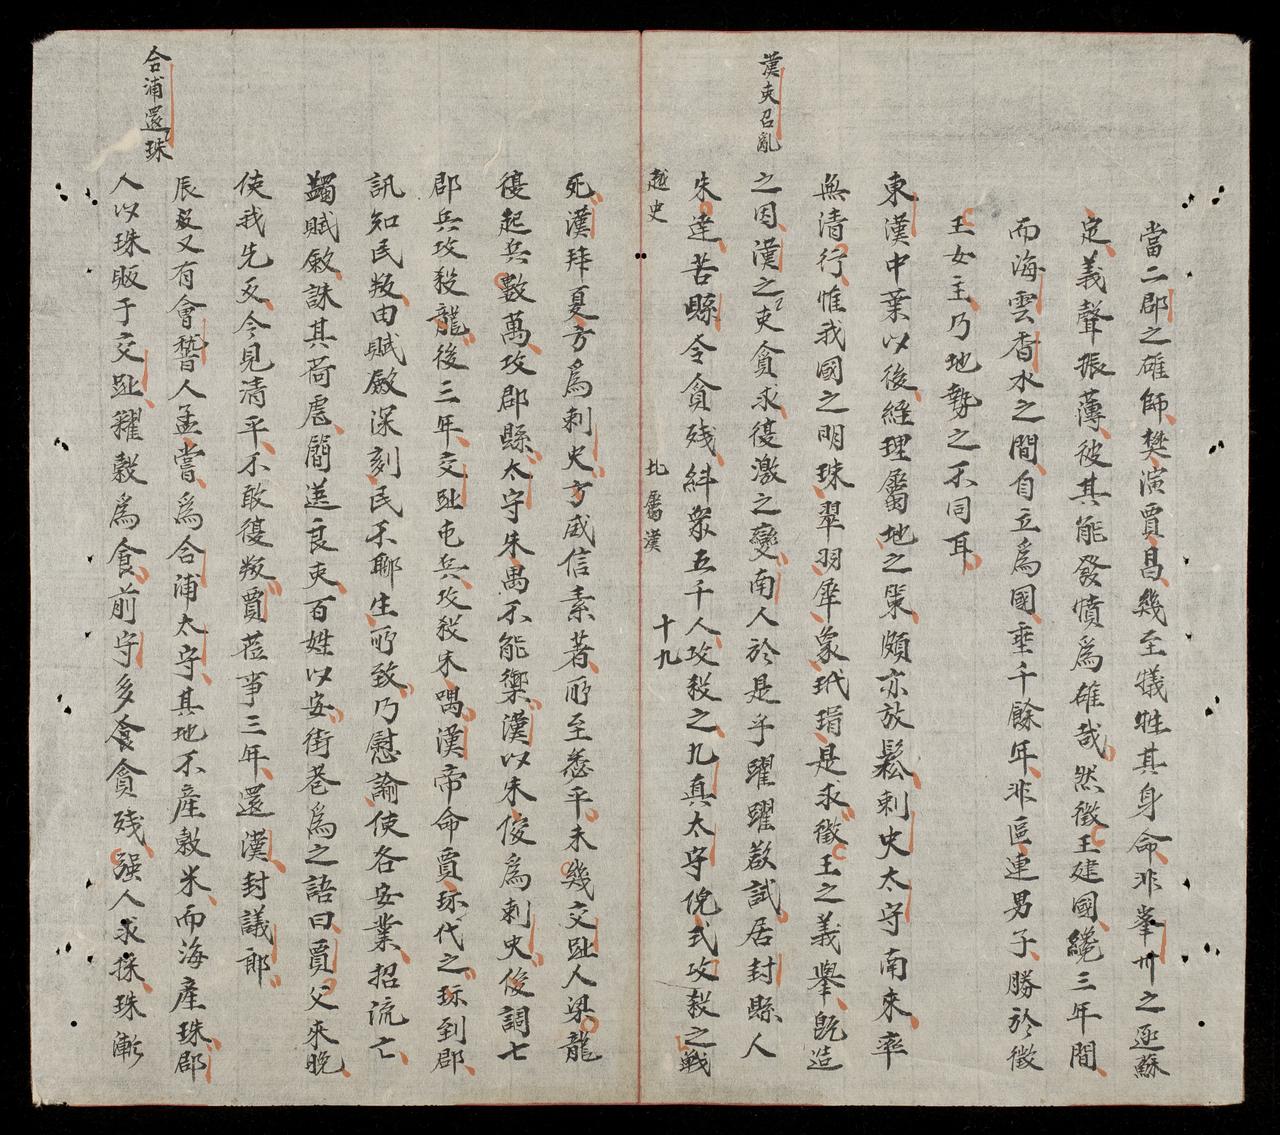 當二郡之雄師樊演賈昌幾至犠牲其身命非峯卅之亟蘇
定義聲振薄彼其能發憤爲雄哉然徵王建國纔三年間
而海雲香水之間自立爲國垂千餘年非區連男子勝於徵
王女主乃地勢之不同耳
漢吏召亂
東漢中葉以後經理屬地之策頗亦放鬆刺史太守南來率
無清行惟我國之明珠翠羽犀象玳瑁是求徵王之義舉旣造
之因漢之吏貪求復激之變南人於是乎躍躍欲試居封縣人
朱達苦縣令貪残糾衆五千人攻殺之九真太守倪式攻殺之戰
越史
北屬漢
十九
死漢拜夏方爲刺史方威信素著所至悉平未幾交趾人梁龍
復起兵數萬攻郡縣太守朱㒖不能禦漢以朱俊爲刺史俊調七
郡兵攻殺龍後三年交趾屯兵攻殺朱喁漢帝命賈琮代之琮到郡
訊知民叛由賦斂深刻民不聊生所致乃慰諭使各安業招流亡
蠲賦斂誅其苛虐簡送良吏百姓以安街巷爲之語曰賈父來晚
使我先反今見清平不敢復叛賈莅事三年還漢封議郎
合浦還珠
辰叚又有會稽人孟嘗爲合浦太守其地不產穀米而海產珠郡
人以珠販于交趾糴穀爲食前守多貪貪残强人求採珠漸